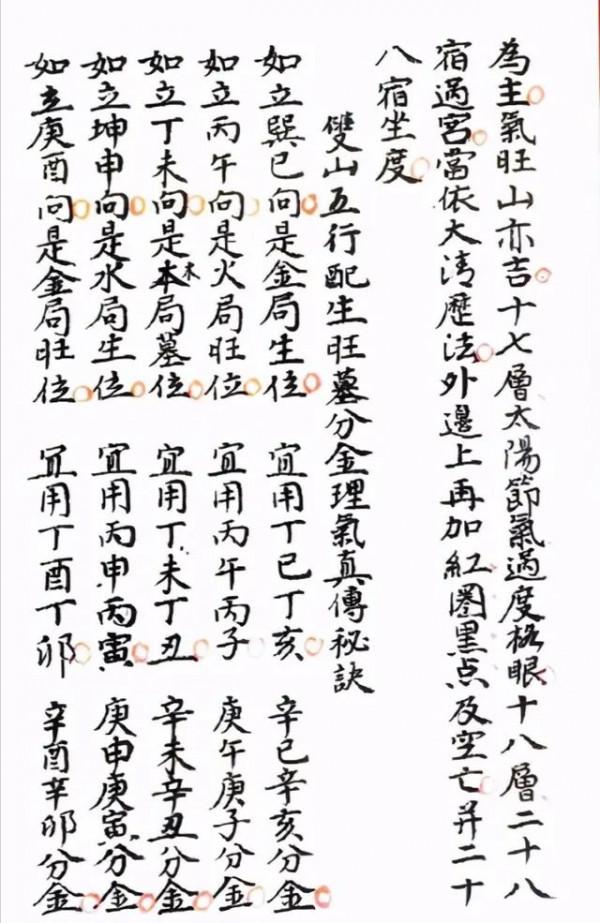 為主氣旺山亦吉十七層太陽節氣過度格眼十八層二十八
宿過宮當依大清歷法外邊上再加紅圈黑点及空亡并二十
八宿坐度
雙山五行配生旺墓分金理氣真傳秘訣
如立巽巳向是金局生位 宜用丁巳丁亥 辛巳辛亥分金
如立丙午向是火局旺位 宜用丙午丙子 庚午庚子分金
如立丁未向是本木局墓位 宜用丁未丁丑 辛未辛丑分金
如立坤申向是水局生位 宜用丙申丙寅 庚申庚寅分金
如立庚酉向是金局旺位 宜用丁酉丁卯 辛酉辛卯分金